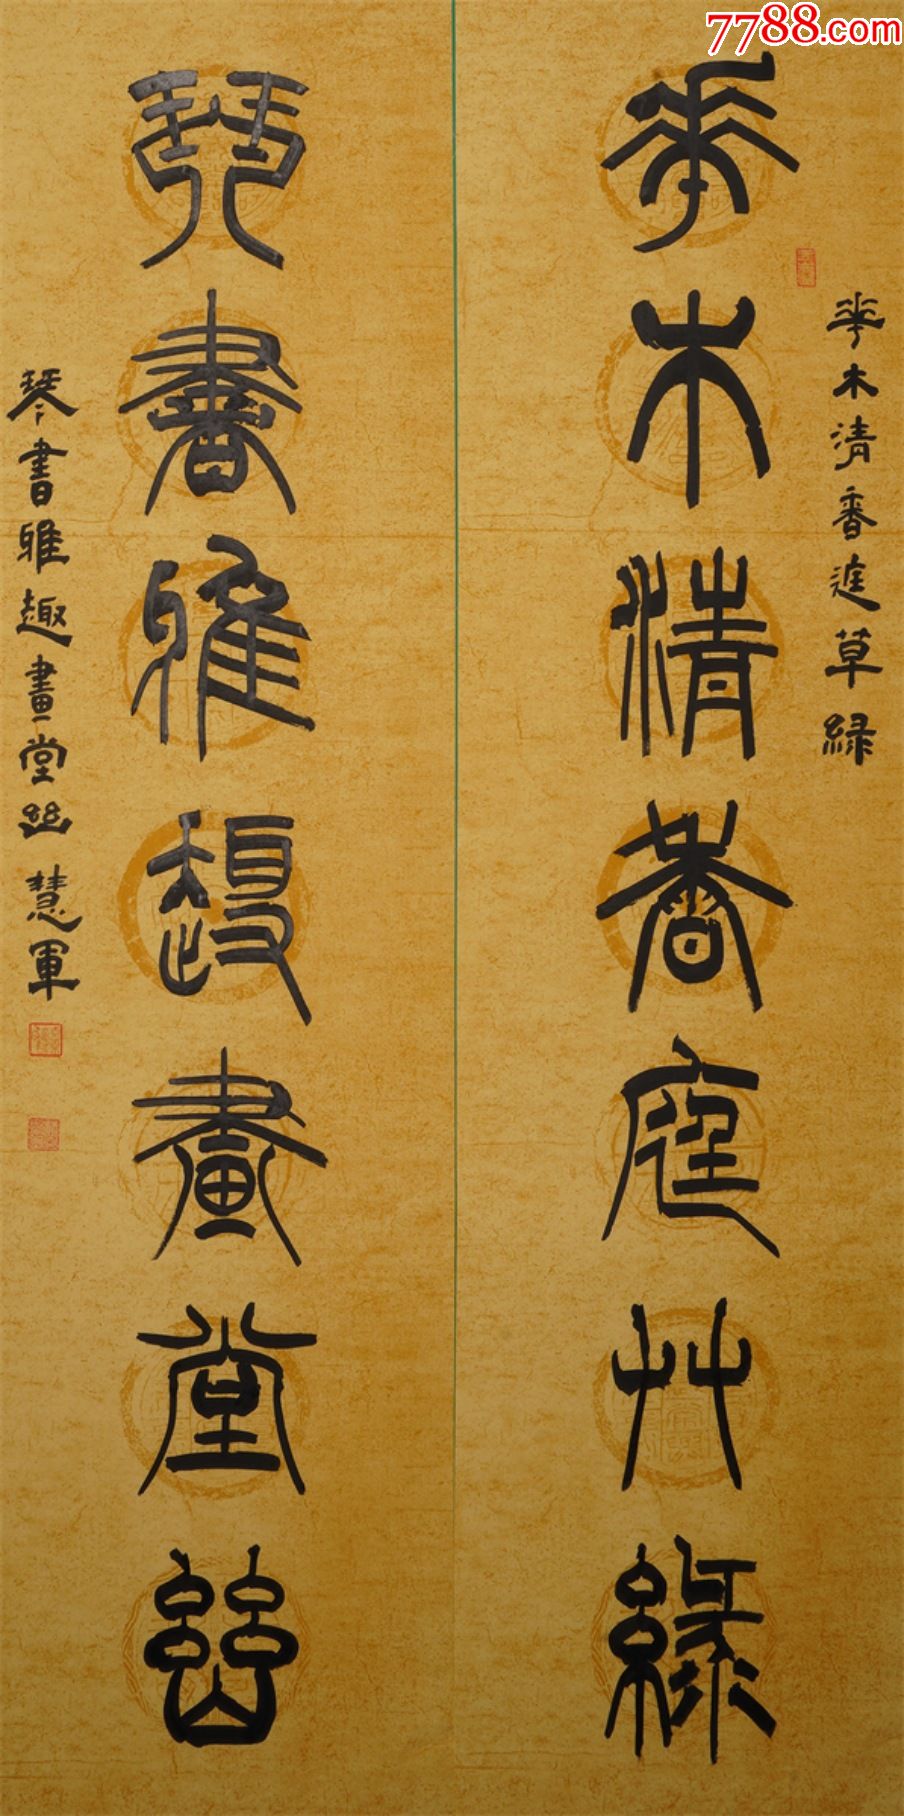 7788.com
華木清香庭艸綠
華木清香庭草緑
琴書雅趣畫堂幽
琴書雅趣畫堂幽 慧軍